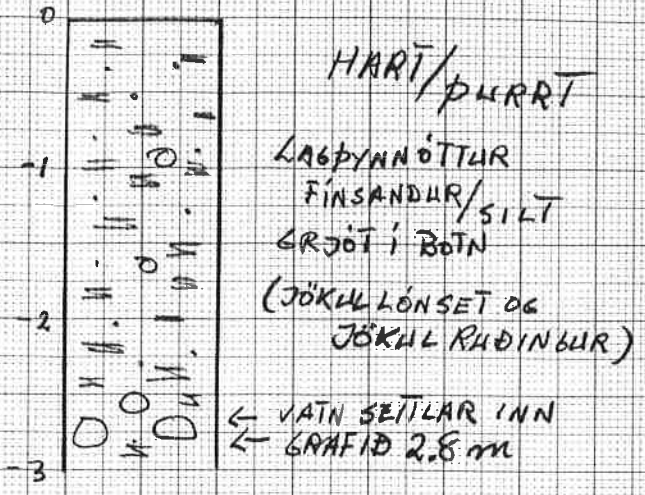 0
HART/ÞURRT
-1
LAGÞYNNÓTTUR
FÍNSANDUR/SILT
GRJÓT Í BOTN
(JÖKULLÓNSET OG
-2
JÖKULRUÐINGUR)
← VATN SEITLAR INN
← GRAFIÐ 2.8 m
-3